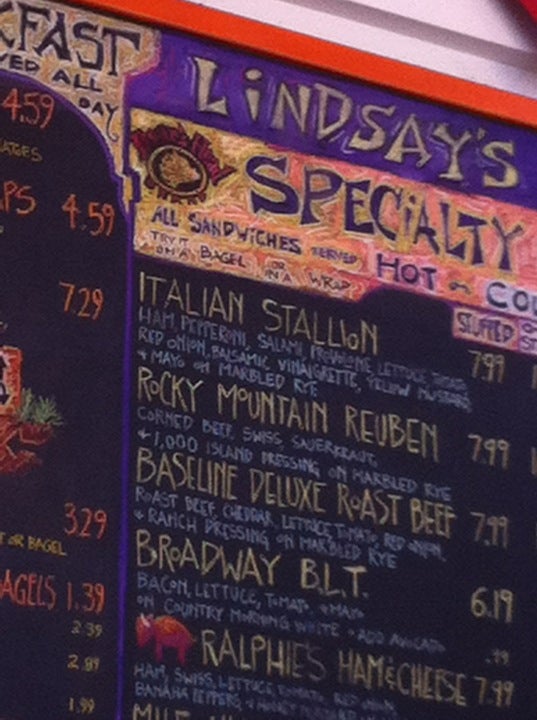 KFAST
VED ALL
DAY
4.59
PS 4.59
7.29
3.29
OR BAGEL
AGELS 1.39
2.39
2.89
1.99
LINDSAY'S
SPECIALTY
ALL SANDWICHES SERVED HOT OR CO
TRY IT ON A BAGEL OR IN A WRAP
STUFFED
ITALIAN STALLION 7.99
HAM, PEPPERONI, SALAMI, PROVOLONE, LETTUCE, TOMATO
RED ONION, BALSAMIC VINAIGRETTE, YELLOW MUSTARD
+ MAYO ON MARBLED RYE
ROCKY MOUNTAIN REUBEN 7.99
CORNED BEEF, SWISS, SAUERKRAUT,
+ 1,000 ISLAND DRESSING ON MARBLED RYE
BASELINE DELUXE ROAST BEEF 7.99
ROAST BEEF, CHEDDAR, LETTUCE, TOMATO, RED ONION,
+ RANCH DRESSING ON MARBLED RYE
BROADWAY B.L.T. 6.19
BACON, LETTUCE, TOMATO, + MAYO
ON COUNTRY MORNING WHITE • ADD AVOCADO .99
RALPHIE'S HAM & CHEESE 7.99
HAM, SWISS, LETTUCE, TOMATO, RED ONION,
BANANA PEPPERS, + HONEY